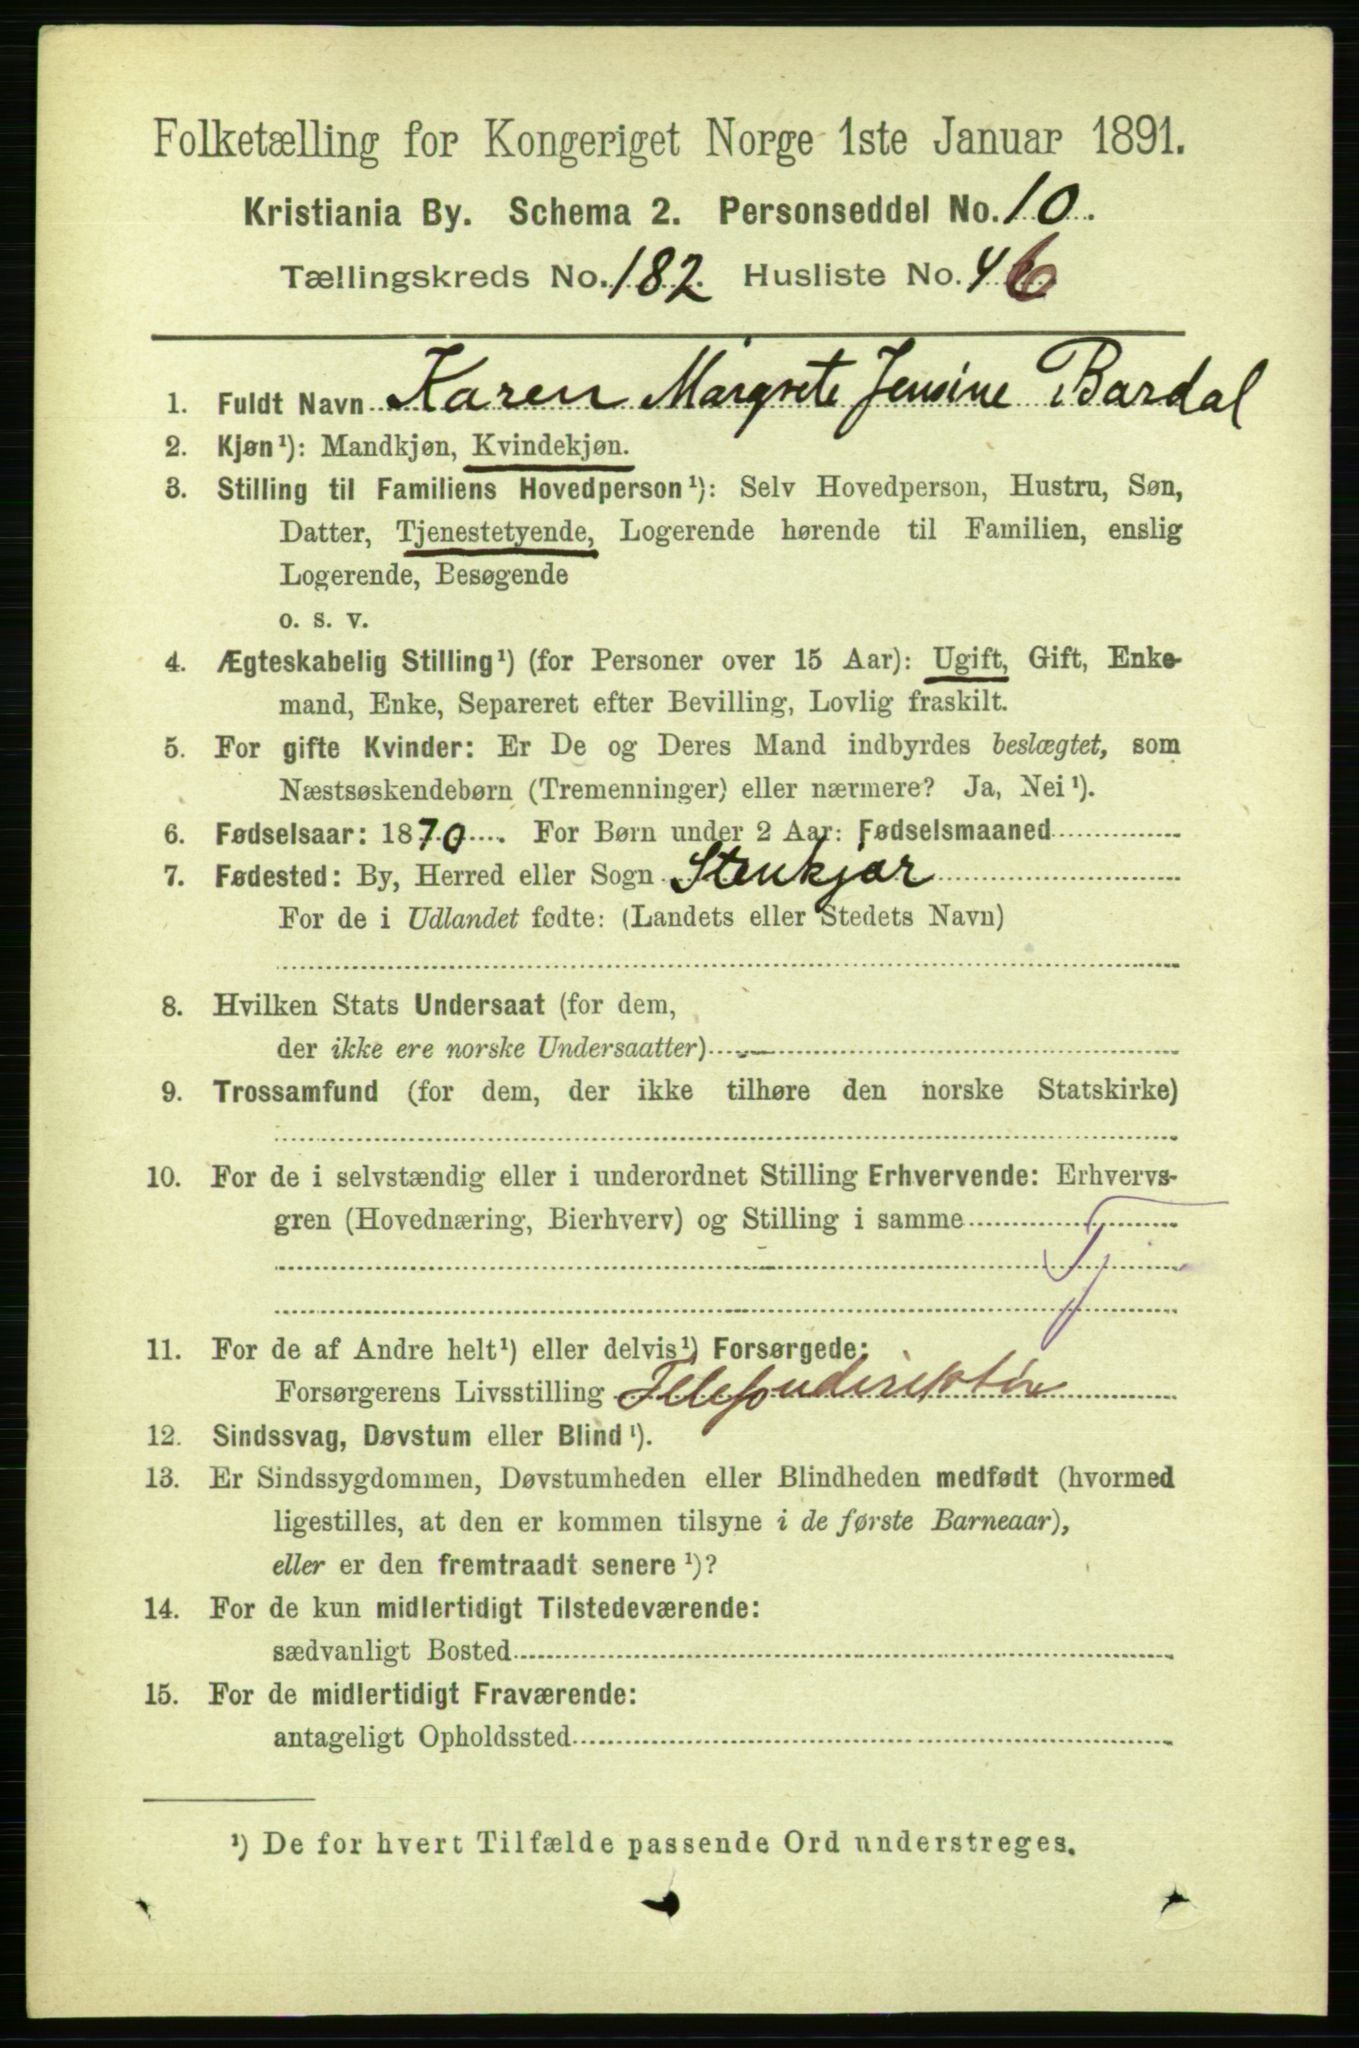 Folketælling for Kongeriget Norge 1ste Januar 1891.
Kristiania By. Schema 2. Personseddel No. 10.
Tællingskreds No. 182. Husliste No. 46
1. Fuldt Navn Karen Margrete Jensine Bardal
2. Kjøn¹): Mandkjøn, Kvindekjøn.
3. Stilling til Familiens Hovedperson¹): Selv Hovedperson, Hustru, Søn,
Datter, Tjenestetyende, Logerende hørende til Familien, enslig
Logerende, Besøgende
o. s. v.
4. Ægteskabelig Stilling¹) (for Personer over 15 Aar): Ugift, Gift, Enke-
mand, Enke, Separeret efter Bevilling, Lovlig fraskilt.
5. For gifte Kvinder: Er De og Deres Mand indbyrdes beslægtet, som
Næstsøskendebørn (Tremenninger) eller nærmere? Ja, Nei¹).
6. Fødselsaar: 1870. For Børn under 2 Aar: Fødselsmaaned
7. Fødested: By, Herred eller Sogn Stenkjær
For de i Udlandet fødte: (Landets eller Stedets Navn)
8. Hvilken Stats Undersaat (for dem,
der ikke ere norske Undersaatter)
9. Trossamfund (for dem, der ikke tilhøre den norske Statskirke)
10. For de i selvstændig eller i underordnet Stilling Erhvervende: Erhvervs-
gren (Hovednæring, Bierhverv) og Stilling i samme
Tj
11. For de af Andre helt¹) eller delvis¹) Forsørgede:
Forsørgerens Livsstilling Telefondirektör
12. Sindssvag, Døvstum eller Blind¹).
13. Er Sindssygdommen, Døvstumheden eller Blindheden medfødt (hvormed
ligestilles, at den er kommen tilsyne i de første Barneaar),
eller er den fremtraadt senere¹)?
14. For de kun midlertidigt Tilstedeværende:
sædvanligt Bosted
15. For de midlertidigt Fraværende:
antageligt Opholdssted
¹) De for hvert Tilfælde passende Ord understreges.